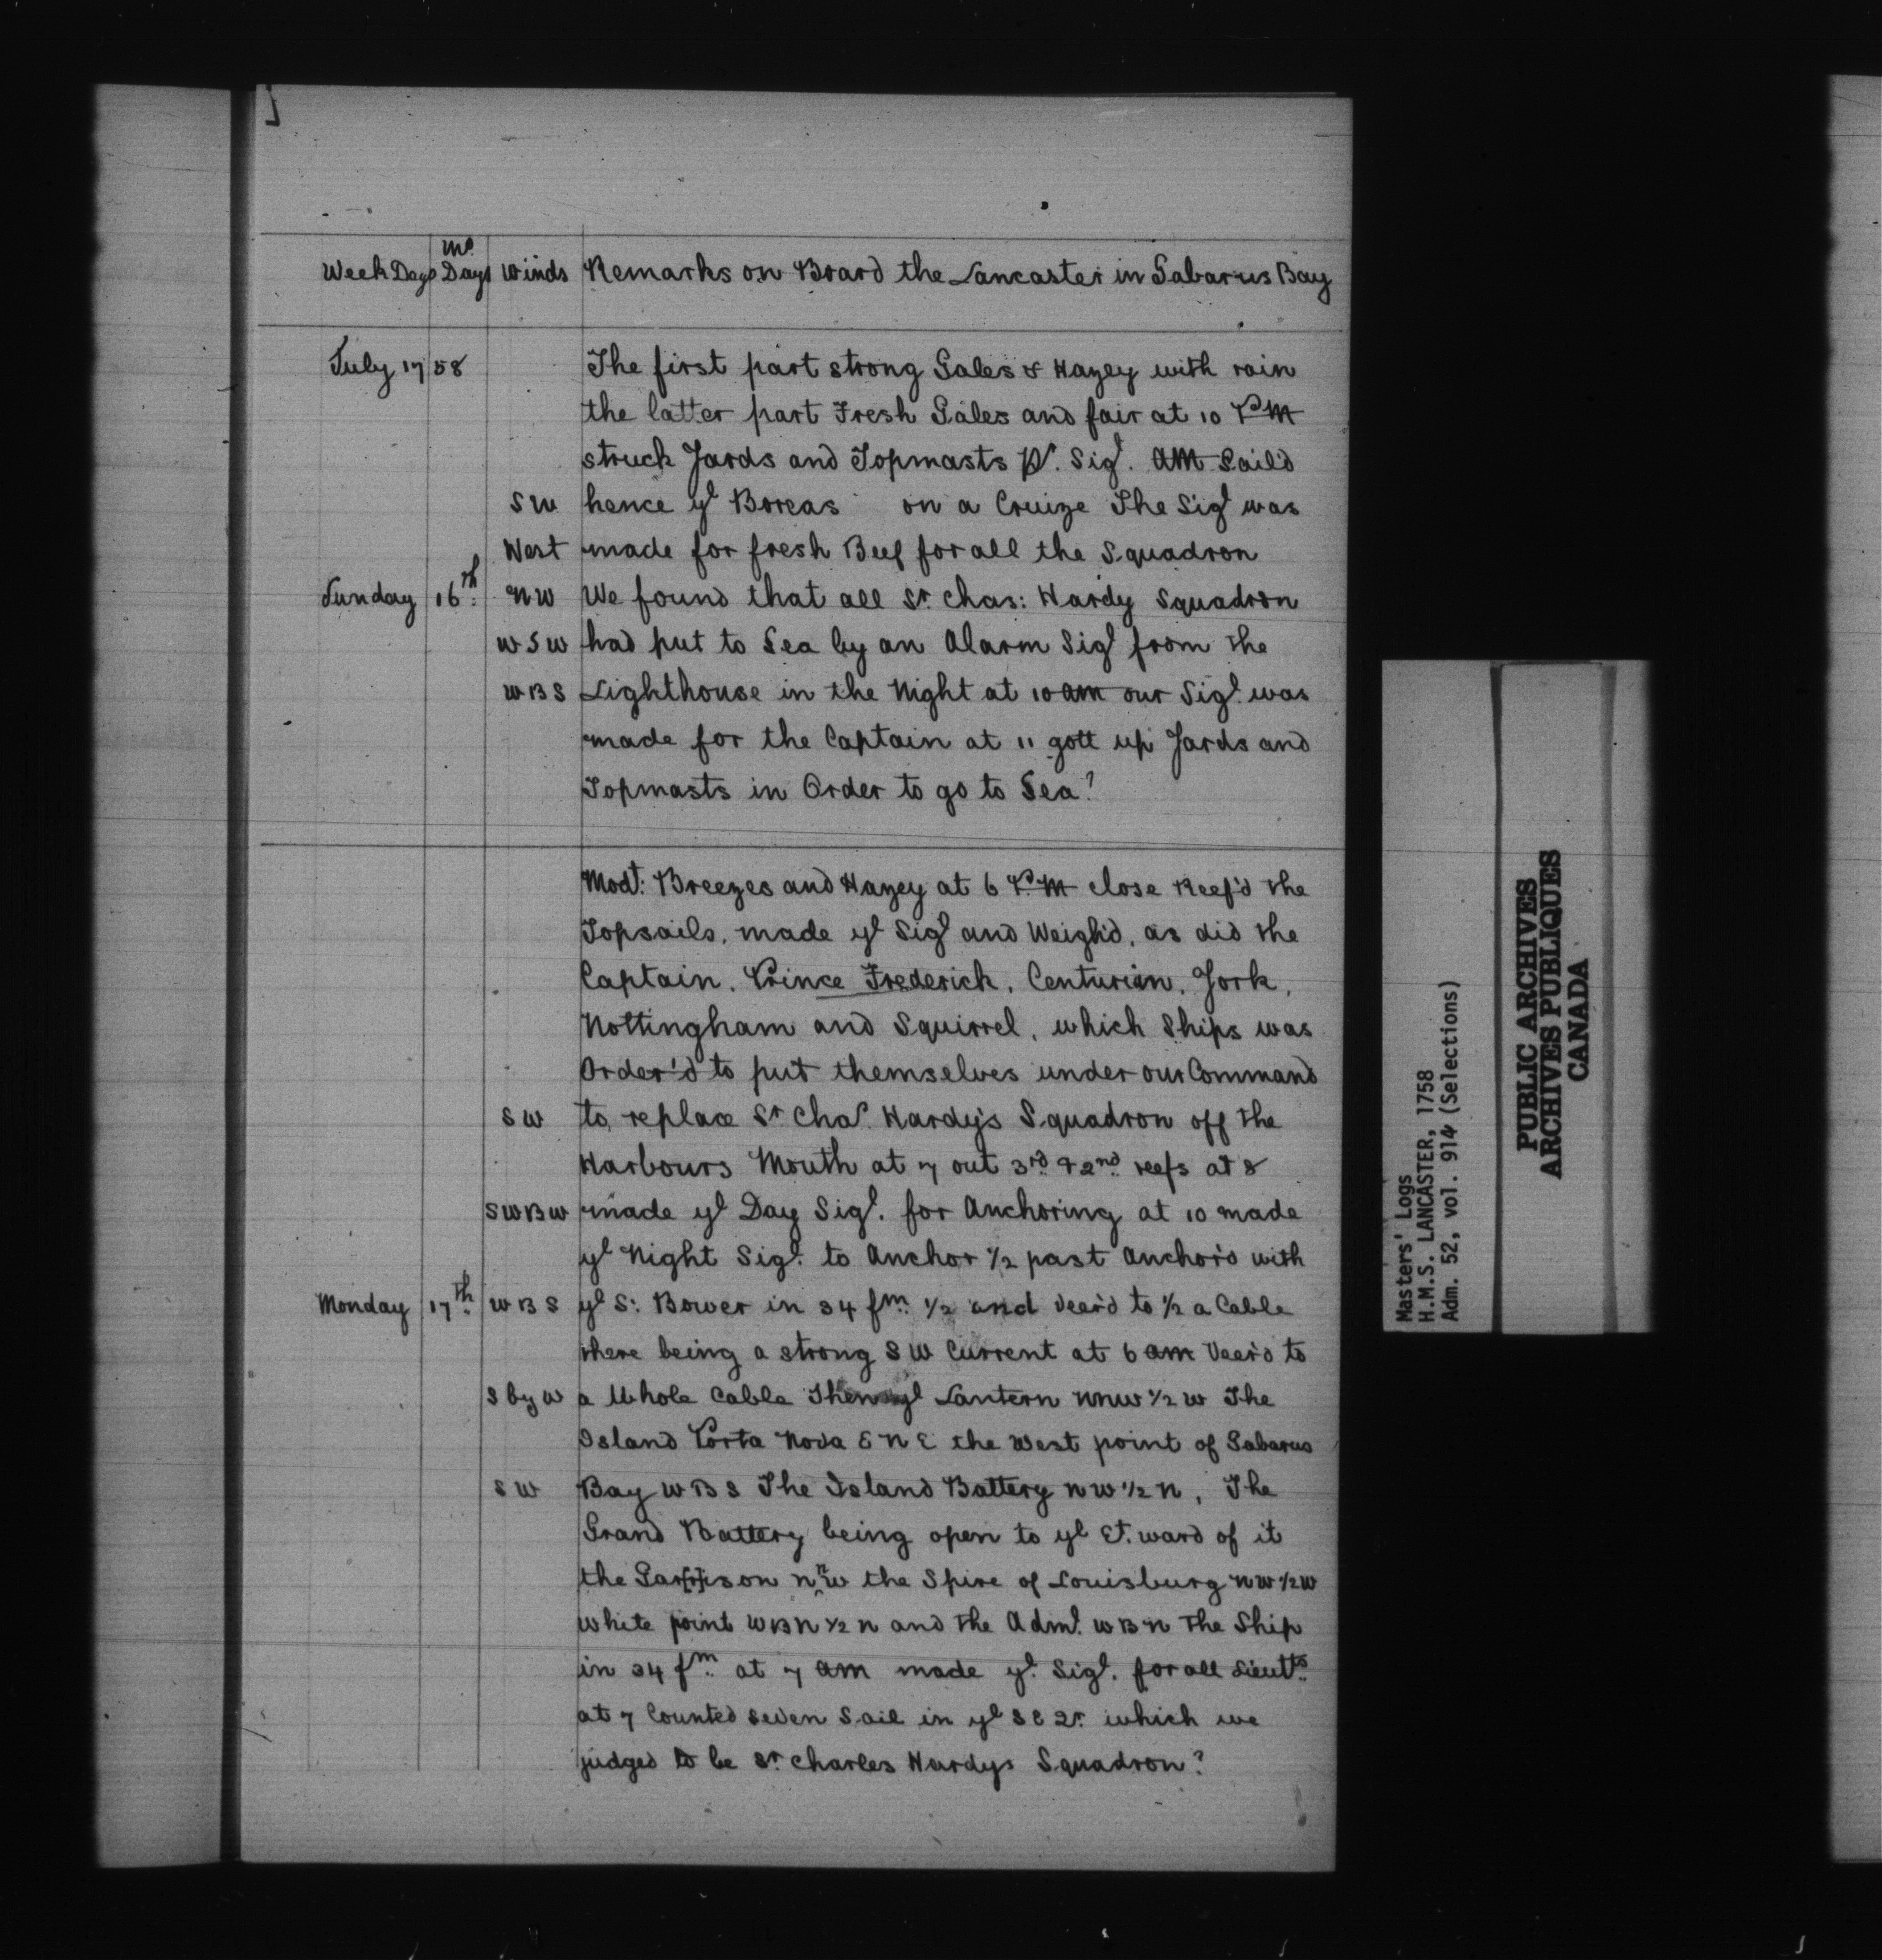 Week Days Mo. Days Winds Remarks on Board the Lancaster in Gabarus Bay
July 1758 The first part strong Gales & Hazey with rain
the latter part Fresh Gales and fair at 10 PM
struck Yards and Topmasts Pr. Sigl. AM Sail'd
SW hence ye Boreas on a Cruize The Sigl was
West made for fresh Beef for all the Squadron
Sunday 16th. NW We found that all Sr. Chas: Hardy Squadron
WSW had put to Sea by an Alarm Sigl from the
WBS Lighthouse in the Night at 10 am our Sigl. was
made for the Captain at 11 gott up Yards and
Topmasts in Order to go to Sea?
Modt: Breezes and Hazey at 6 PM close Reef'd the
Topsails, made ye Sigl and Weigh'd, as did the
Captain, Prince Frederick, Centurion, York,
Nottingham and Squirrel, which Ships was
Order'd to put themselves under our Command
SW to replace Sr Chas. Hardy's Squadron off the
Harbours Mouth at 7 out 3rd. & 2nd. reefs at 8
SWBW made ye Day Sigl. for Anchoring at 10 made
ye Night Sigl. to Anchor 1/2 past Anchor'd with
Monday 17th. WBS ye S: Bower in 34 fm. 1/2 and Veer'd to 1/2 a Cable
there being a strong SW Current at 6 am Veer'd to
S by W a Whole Cable Then ye Lantern NNW 1/2 W The
Island Porta Nova ENE the West point of Gabarus
SW Bay WBS The Island Battery NW 1/2 N, The
Grand Battery being open to ye Et. ward of it
the Gar[r]ison NNW the Spire of Louisburg NW 1/2 W
White point WBN 1/2 N and the Adml. WBN The Ship
in 34 fm. at 7 am made ye. Sigl. for all Lieutts.
at 7 Counted seven Sail in ye SE Qr. which we
judged to be Sr. Charles Hardys Squadron?
Masters' Logs
H.M.S. LANCASTER, 1758
Adm. 52, vol. 914 (Selections)
PUBLIC ARCHIVES
ARCHIVES PUBLIQUES
CANADA